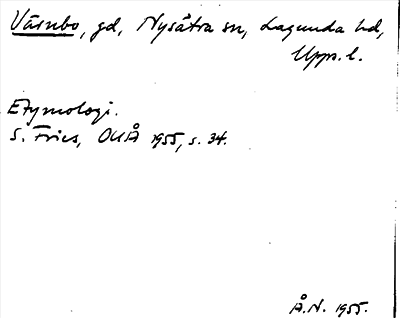 Värnbo, gd, Nysätra sn, Lagunda hd,
Upps. l.
Etymologi.
S. Fries, OUÅ 1955, s. 34.
Å.N. 1955.